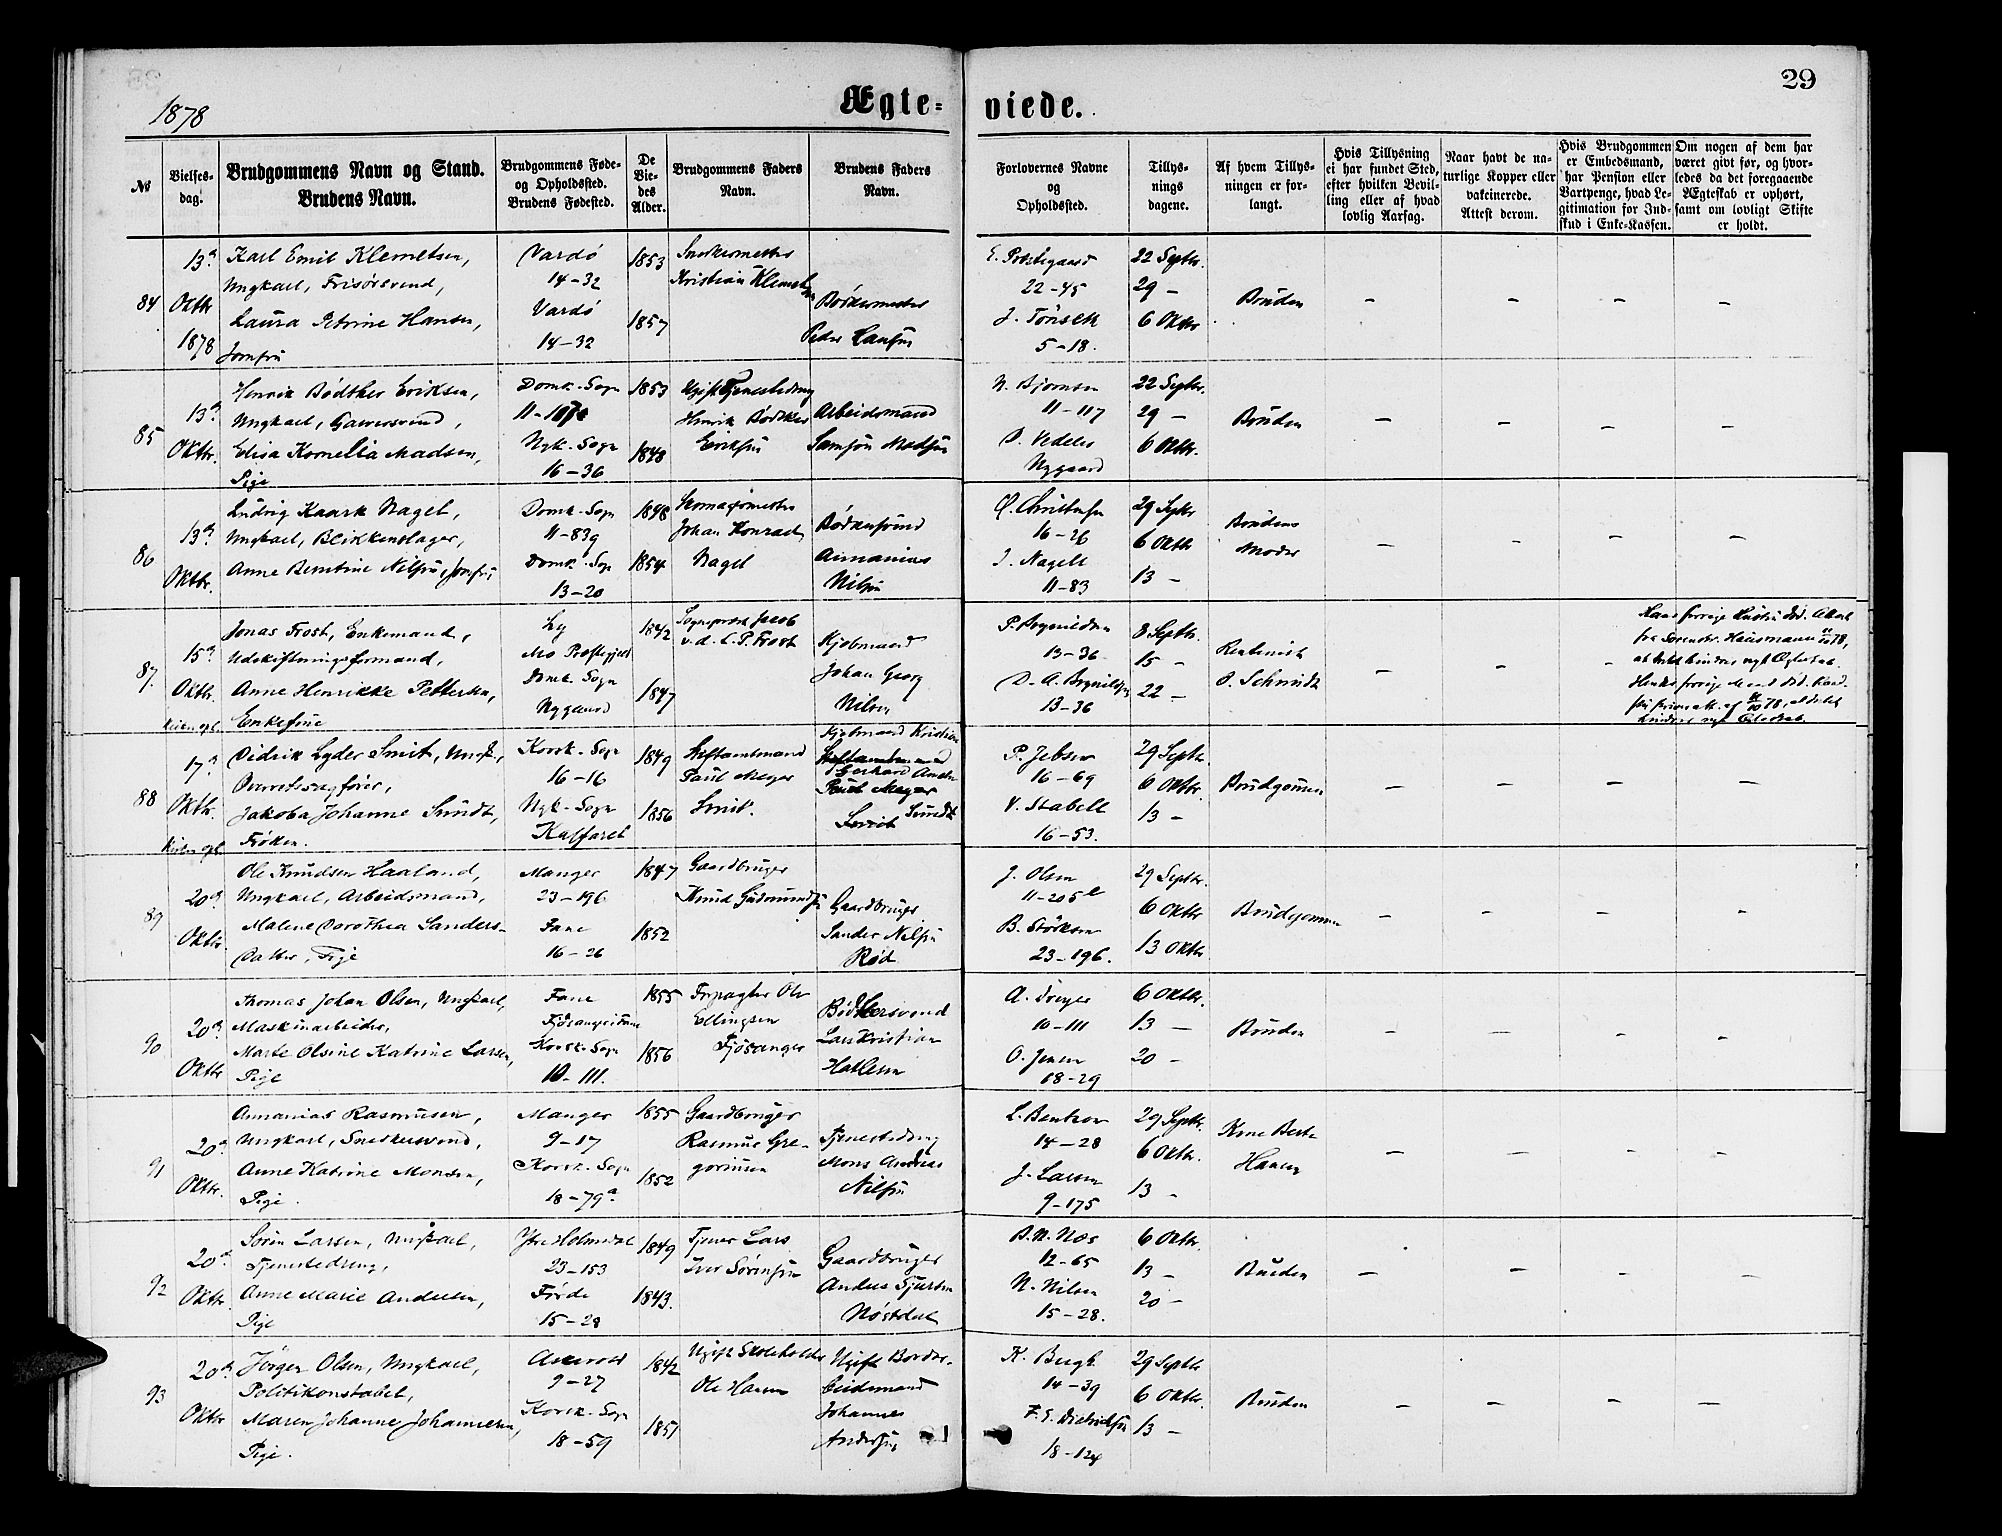 29
1878
Ægte-
viede.
№
Vielses-
dag.
Brudgommens Navn og Stand.
Brudens Navn.
Brudgommens Føde-
og Opholdssted.
Brudens Fødested.
De
Vie-
des
Alder.
Brudgommens Faders
Navn.
Brudens Faders
Navn.
Forlovernes Navne
og
Opholdssted.
Tillys-
nings
dagene.
Af hvem Tillys-
ningen er for-
langt.
Hvis Tillysning
ei har fundet Sted,
efter hvilken Bevil-
ling eller af hvad
lovlig Aarsag.
Naar havt de na-
turlige Kopper eller
vakeinerede.
Attest derom.
Hvis Brudgommen
er Embedsmand,
har Pension eller
Vartpenge, hvad Le-
gitimation for Ind-
skud i Enke-Kassen.
Om nogen af dem har
været givt før, og hvor-
ledes da det foregaaende
Ægteskab er ophørt,
samt om lovligt Skifte
er holdt.
84
13de
Oktbr
1878
Karl Emil Klemetsen,
Ungkarl, Frisørsvend,
Laura Petrine Hansen,
Jomfru
Vardø
14-32
Vardø
14-32
1853
1857
Snedkermester
Kristian Klemetsen
Bødkermester
Peder Hansen
22-45
5-18.
22 Septbr.
29 -
6 Oktbr
Bruden
85
13de
Oktbr.
Henrik Bødtker Eriksen,
Ungkarl, Garversvend,
Elisa Kornelia Madsen,
Pige
Domk.-Sogn
Nyk.-Sogn
16-36
1853
1848
Ugift Tjenestedreng
Henrik Bødtker
Eriksen
Arbeidsmand
Samson Madsen
N. Bjørnsen
11-117
D. Vedeler
Nygaard
22 Septbr.
29 -
6 Oktbr.
Bruden
86
13de
Oktbr.
Ludvig Kaark Nagel,
Ungkarl, Blikkenslager,
Anne Berntine Nilsen, Jomfru
Domk.-Sogn
11-839
Domk.-Sogn
13-20
1848
1854
Skomagermester
Johan Konrad
Nagel
Bødkersvend
Annanias
Nilsen
16-26
J. Nagell
11-83
29 Septbr
6 Oktbr
13 -
Brudens
Moder
87.
15de
Oktbr.
Jonas Frost, Enkemand,
Udskiftningsformand,
Anne Henrikke Pettersen,
Enkefrue
Mo Præstegjeld
Domk. Sogn
Nygaard
1842
1847
Sogneprest Jacob
v.d. L.P. Frost
Kjøbmand
Johan Georg
Nilsen
P. Brynildsen
13-36
D. A. Brynildsen
13-36
8 Septbr.
15 -
22 -
O. Schmidt
88
17de
Oktbr.
Didrik Lyder Smit, Ungk.,
Overretssagfører,
Jakoba Johanne Sundt,
Frøken.
Korsk.-Sogn
16-16
Nyk.-Sogn
Kalfaret
1849
1856
Stiftamtmand
Paul Meyer
Smit.
Kjøbmand Kristian
Stiftamtmand
Gerhard Ander
Paul Meyer
Smit Sundt
P. Jebsen
16-69
V. Stabell
16-53.
29 Septbr.
6 Oktbr.
13 -
Brudgommen
89
20de
Oktbr.
Ole Knudsen Haaland,
Ungkarl, Arbeidsmand,
Malene Dorothea Sanders-
Datter, Pige
Manger
23-196
Fane
16-26
1847
1852
Gaardbruger
Knud Gudmundsen
Gaardbruger
Sander Nilsen
Rød
J. Olsen
11-205e
B. Størksen
23-196.
29 Septbr.
6 Oktbr
13 Oktbr
Brudgommen
90
20de
Oktbr
Thomas Johan Olsen, Ungkarl,
Maskinarbeider,
Marte Olsine Katrine Larsen,
Pige
Fane
Fjøsanger i Fane
Korsk.-Sogn
10-111.
1855
1856
Forpagter Ole
Ellingsen
Fjøsanger
Bødkersvend
Lars Kristian
Hatlesen
A. Dreyer
10-111
O. Jensen
18-29
6 Oktbr.
13 -
20 -
Bruden
91
20de
Oktbr.
Annanias Rasmusen,
Ungkarl, Snedkersvend,
Anne Katrine Monsen,
Pige.
Manger
9-17
Korsk.-Sogn
18-79a
1855
1852
Gaardbruger
Rasmus Gre-
goriusen
Tjenestedreng
Mons Andreas
Nilsen
L. Bentzon
14-28
J. Larsen
9-175
29 Septbr.
6 Oktbr.
13 -
Hansen
92
20de
Oktbr.
Søren Larsen, Ungkarl,
Tjenestedreng,
Anne Marie Andersen,
Pige
Ytre Holmedal
23-153
Førde
15-28
1849
1843.
Tjener Lars
Iver Sørensen
Gaardbruger
Anders Sjursen
Nøstdal
12-65
N. Nilsen
15-28.
6 Oktbr.
13 -
20 -
Bruden
93
20de
Oktbr
Jørgen Olsen, Ungkarl,
Politikonstabel,
Maren Johanne Johannesen,
Pige.
Askevold
9-27
Korsk.-Sogn
18-59
1842
1851
Ugift Skoleholder
Ole Hansen
Ugift Bordar-
beidsmand
Johannes
Andersen
K. Bergh
14-39
F. E. Didriksen
18-124
29 Septbr
6 Oktbr.
13 -
Bruden